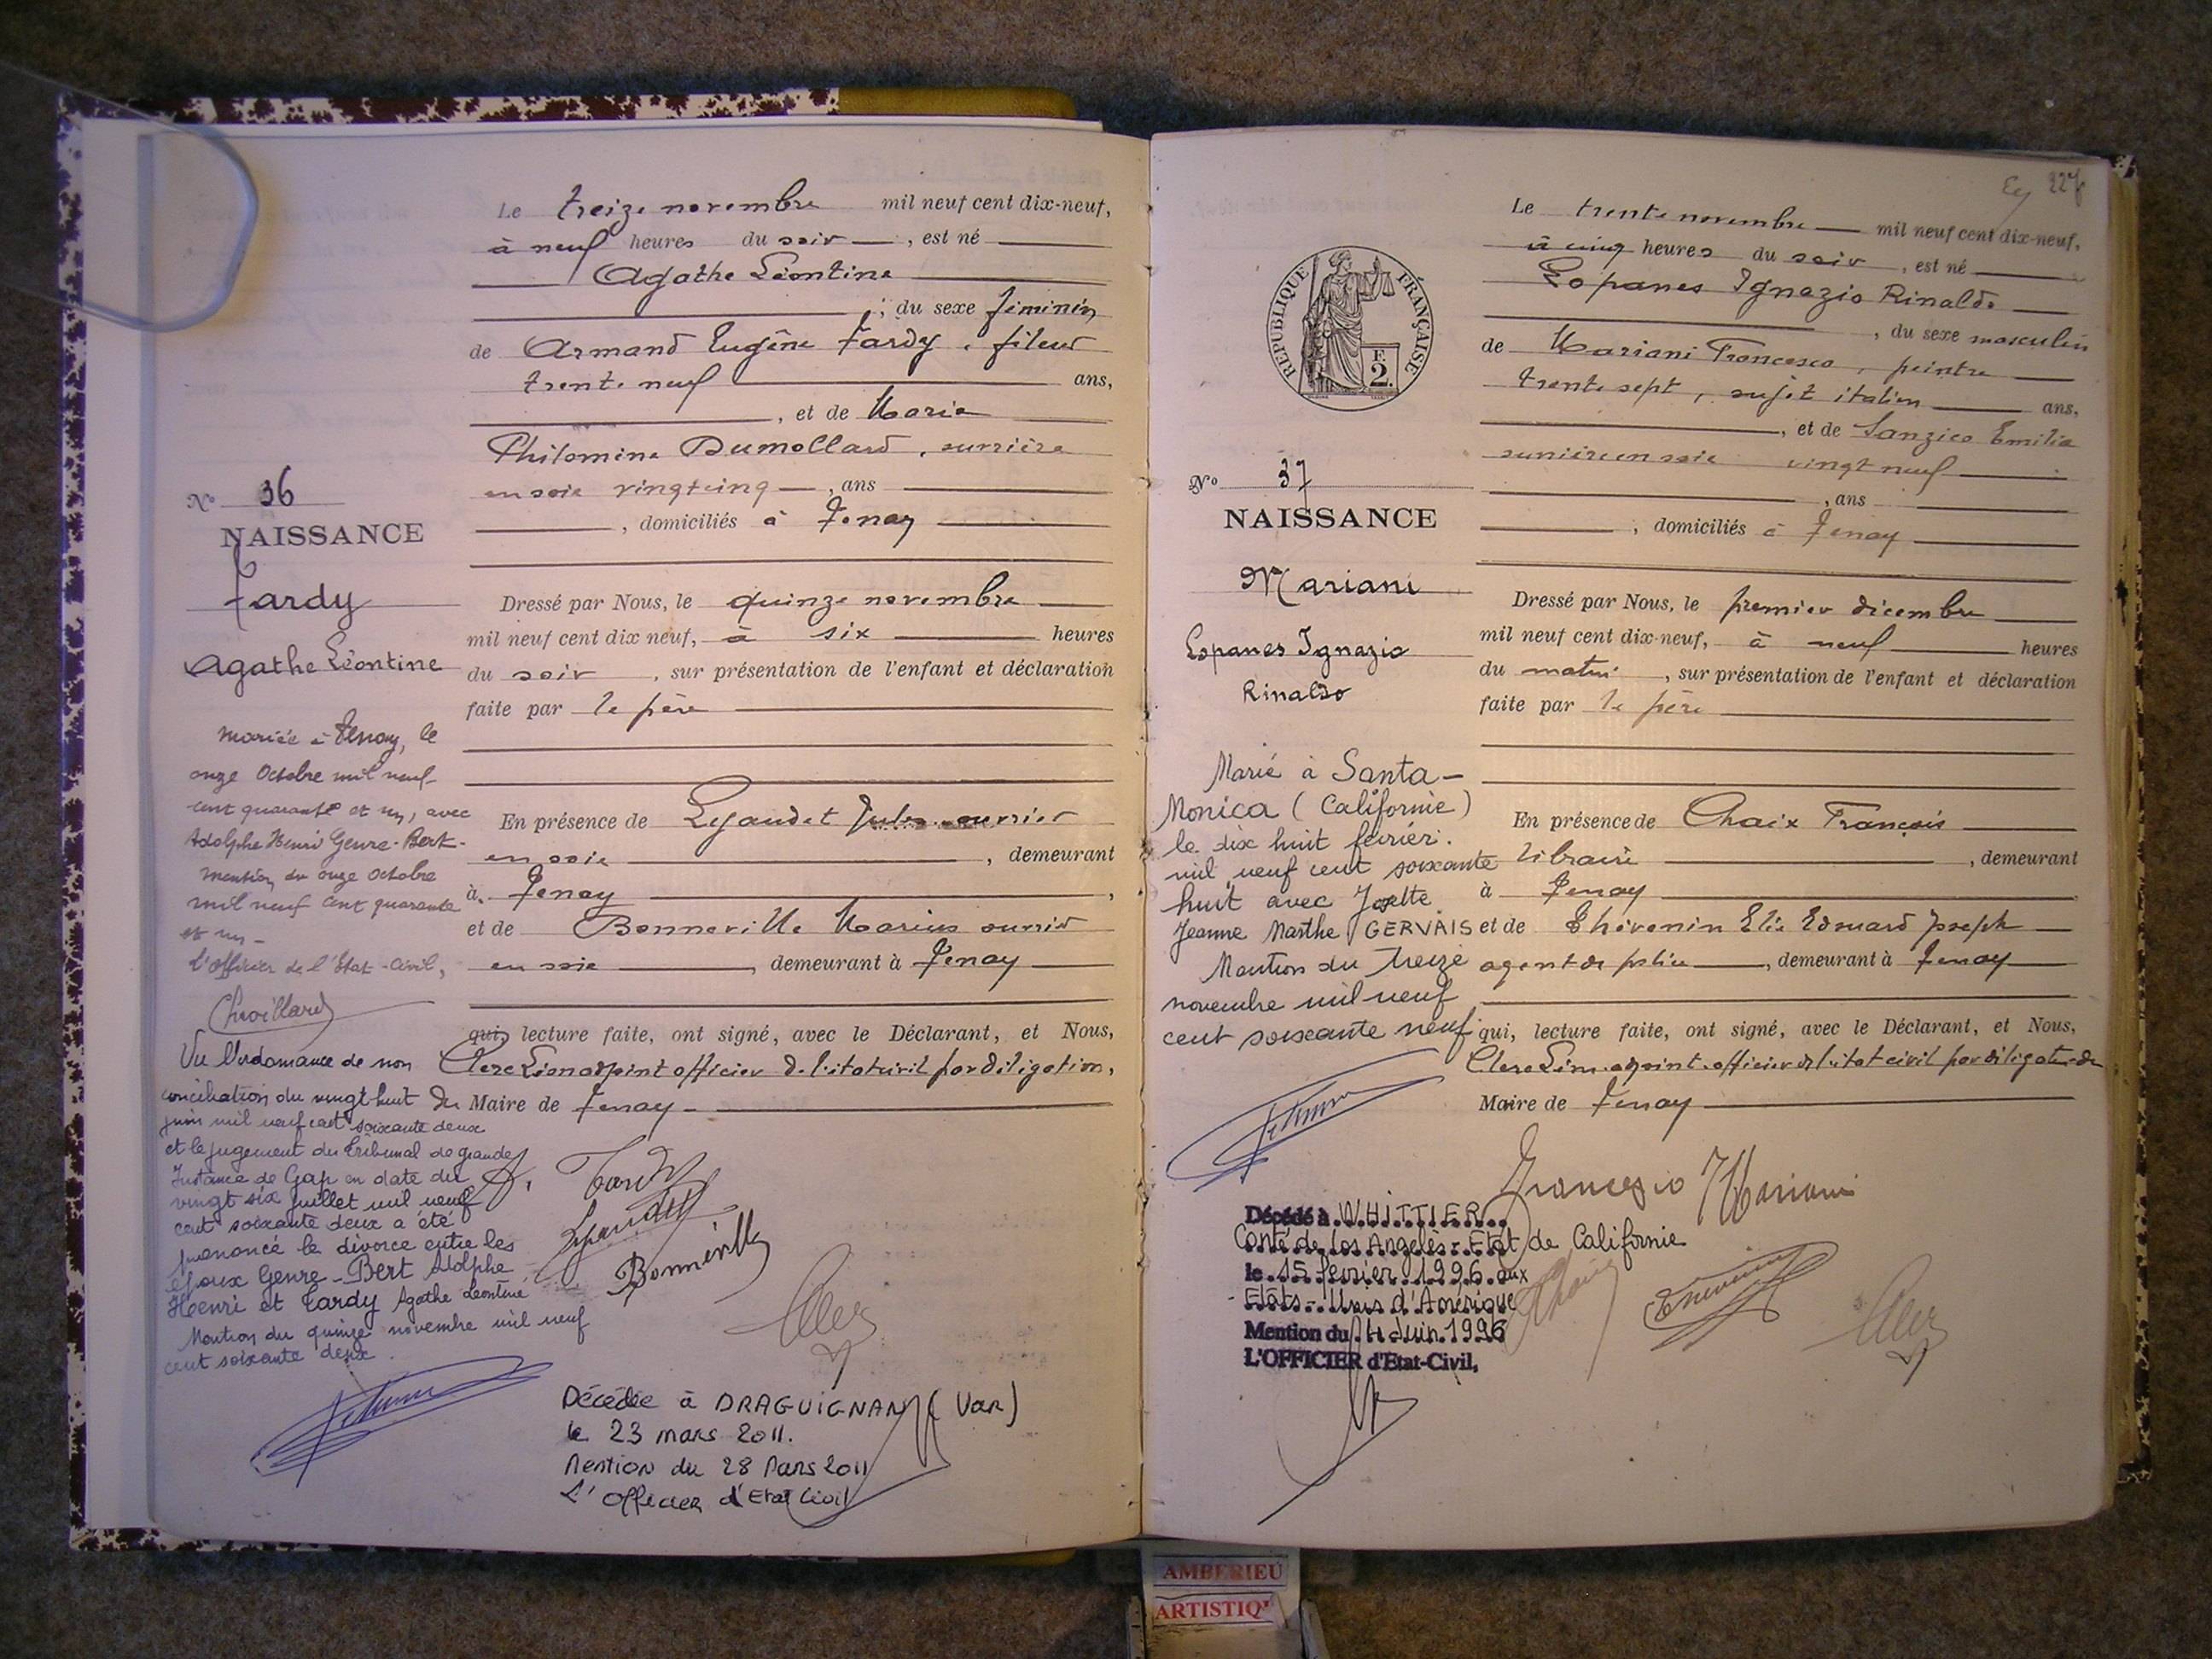 Le treize novembre mil neuf cent dix-neuf,
à neuf heures du soir, est né
Agathe Léontine
, du sexe féminin
de Armand Eugène Tardy, fileur
trente neuf ans,
, et de Marie
Philomène Dumollard, ouvrière
en soie vingt cinq, ans
, domiciliés à Tenay
N° 36
NAISSANCE
Tardy
Agathe Léontine
Dressé par Nous, le quinze novembre
mil neuf cent dix neuf, à six heures
du soir, sur présentation de l'enfant et déclaration
faite par le père
En présence de Legaudet Jules ouvrier
en soie, demeurant
à Tenay,
et de Bonneville Marius ouvrier
en soie, demeurant à Tenay
qui, lecture faite, ont signé, avec le Déclarant, et Nous,
Clerc Léon adjoint officier de l'état civil par délégation,
du Maire de Tenay
mariée à Tenay, le
onze Octobre mil neuf
cent quarante et un, avec
Adolphe Henri Genre-Bert-
Mention du onze Octobre
mil neuf cent quarante
et un-
L'Officier de l'Etat-Civil,
Vu l'ordonnance de non
conciliation du vingt huit
juin mil neuf cent soixante deux
et le jugement du Tribunal de grande
Instance de Gap en date du
vingt six juillet mil neuf
cent soixante deux a été
prononcé le divorce entre les
époux Genre-Bert Adolphe
Henri et Tardy Agathe Léontine
Mention du quinze novembre mil neuf
cent soixante deux.
Tardy
Bonneville
Clerc
Décédée à DRAGUIGNAN (Var)
le 23 mars 2011.
Mention du 28 Mars 2011
L'Officier d'Etat Civil
227
Le trente novembre mil neuf cent dix-neuf,
à cinq heures du soir, est né
Lopanes Ignazio Rinaldo
, du sexe masculin
de Mariani Francesco, peintre
trente sept, sujet italien ans,
, et de Sanzico Emilia
ouvrière en soie vingt neuf
, ans
, domiciliés à Tenay
REPUBLIQUE FRANÇAISE
F.
2.
N° 37
NAISSANCE
Mariani
Lopanes Ignazio
Rinaldo
Dressé par Nous, le premier décembre
mil neuf cent dix-neuf, à neuf heures
du matin, sur présentation de l'enfant et déclaration
faite par le père
En présence de Chaix François
libraire, demeurant
à Tenay
et de Thévenin Elie Edouard Joseph
agent de police, demeurant à Tenay
qui, lecture faite, ont signé, avec le Déclarant, et Nous,
Clerc Léon adjoint officier de l'état civil par délégation du
Maire de Tenay
Marié à Santa-
Monica (Californie)
le dix huit février
mil neuf cent soixante
huit avec Josette
Jeanne Marthe GERVAIS
Mention du treize
novembre mil neuf
cent soixante neuf
Francesco Mariani
Thévenin
Clerc
Décédé à WHITTIER
Conté de Los Angelès-Etat de Californie
le 15 février 1996 aux
Etats-Unis d'Amérique
Mention du 4 Juin 1996
L'OFFICIER d'Etat-Civil,
AMBERIEU
ARTISTIQ